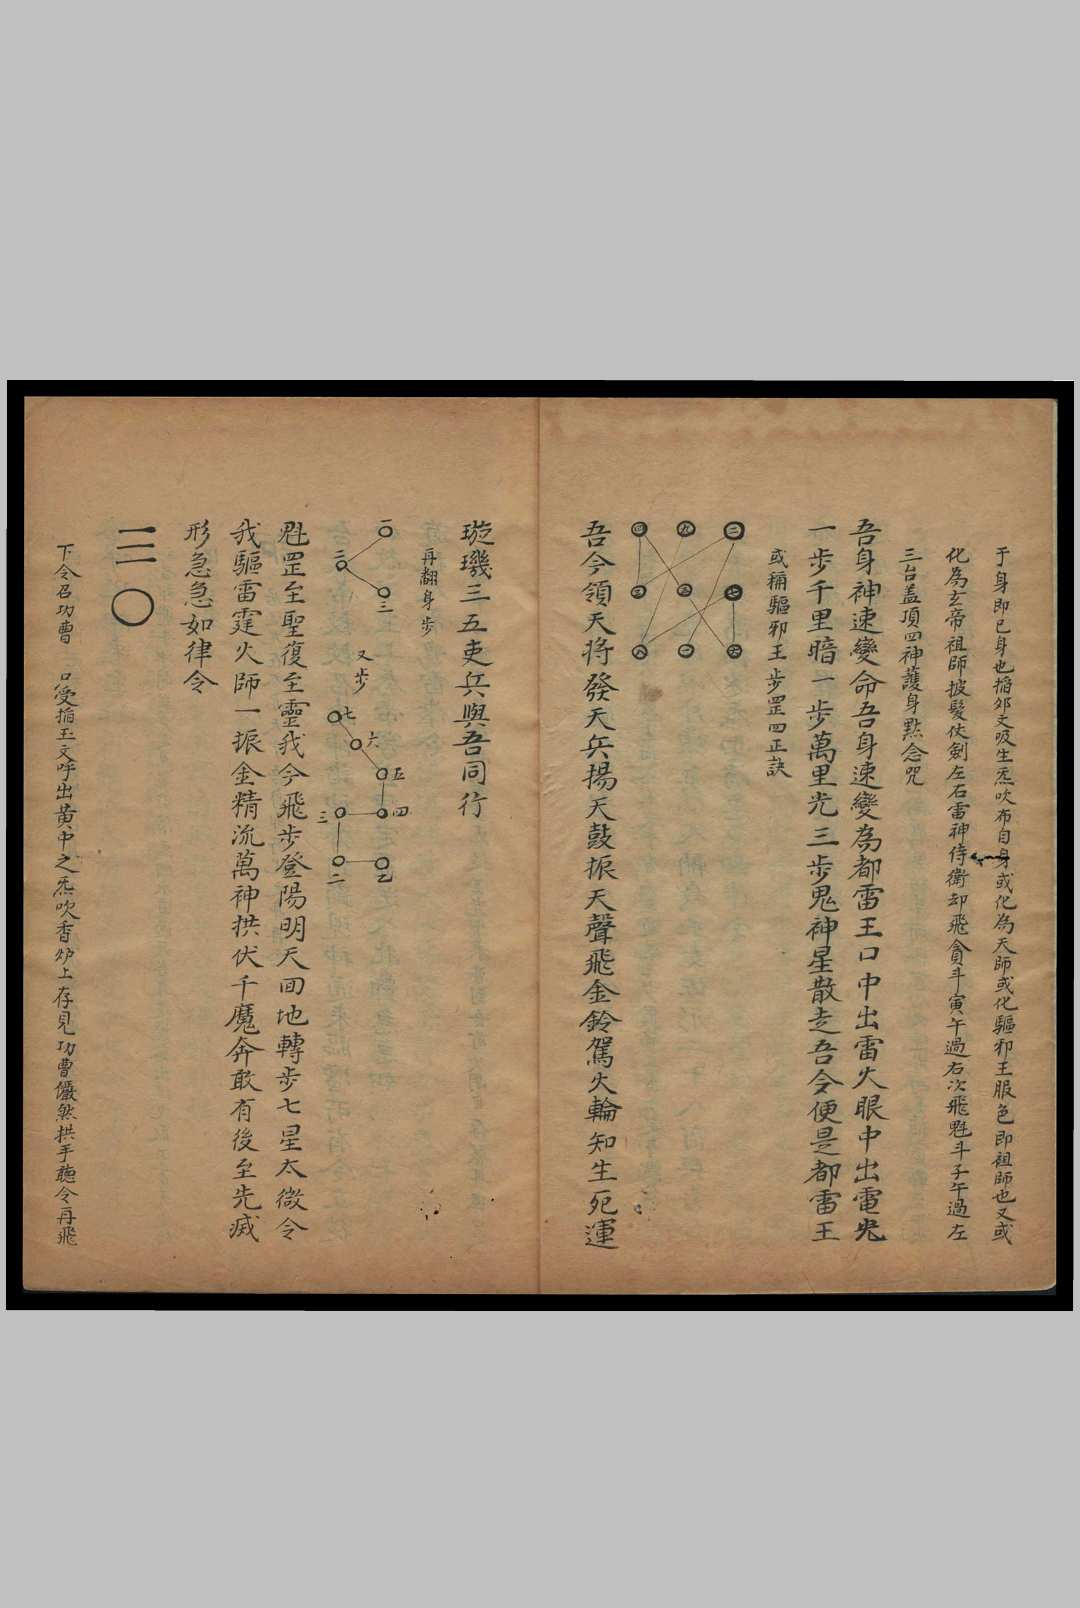 于身即已身也掐卯文吸生炁吹布自身或化為天師或化驅邪王服色即祖師也又或
化為玄帝祖師披髮仗劍左右雷神侍衛却飛貪斗寅午過右次飛魁斗子午過左
三台蓋頂四神護身黙念咒
吾身神速變命吾身速變為都雷王口中出雷火眼中出電光
一步千里暗一步萬里光三步鬼神星散走吾今便是都雷王
或稱驅邪王步罡四正訣
二 七 六
九 五 一
四 三 八
吾今領天将發天兵揚天鼓振天聲飛金鈴駕火輪知生死運
璇璣三五吏兵與吾同行
再翻身步
一 二 三
又步
七 六 五 四 三 二 乙
魁罡至聖復至靈我今飛步登陽明天回地轉步七星太微令
我驅雷霆火師一振金精流萬神拱伏千魔奔敢有後至先烕
形急急如律令
三〇
下令召功曹 口受掐玉文呼出黄中之炁吹香炉上存見功曹儼然拱手聽令再飛